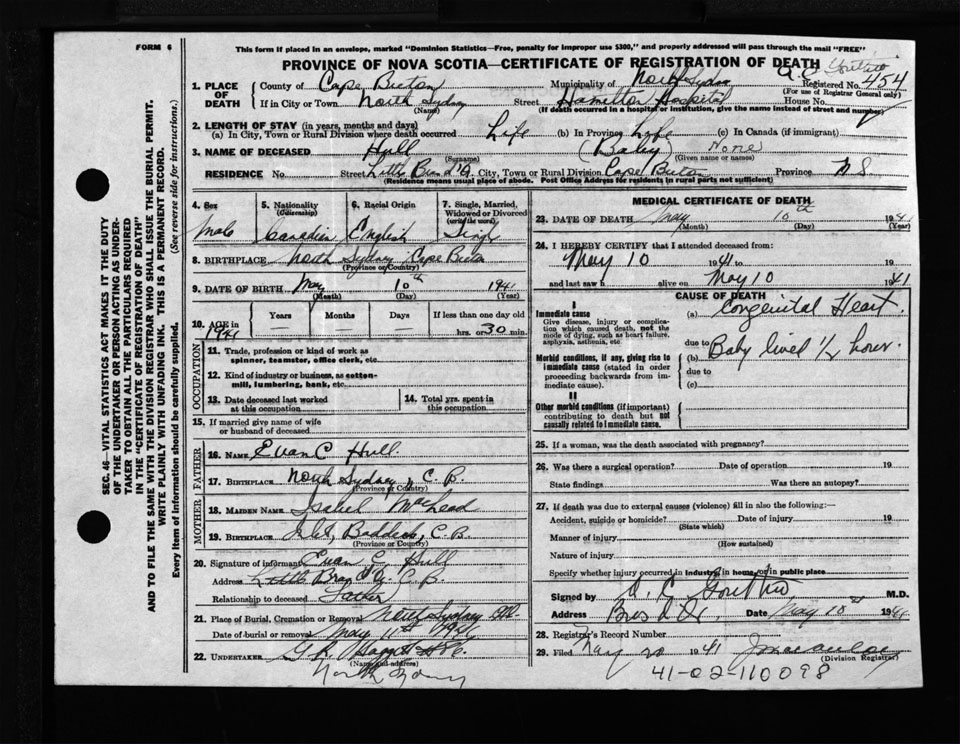 FORM 6
This form if placed in an envelope, marked "Dominion Statistics—Free, penalty for improper use $300," and properly addressed will pass through the mail "FREE"
PROVINCE OF NOVA SCOTIA—CERTIFICATE OF REGISTRATION OF DEATH
Registered No. 454
(For use of Registrar General only)
1. PLACE OF DEATH
County of Cape Breton Municipality of North Sydney
If in City or Town North Sydney Street Hamilton Hospital House No.
(Name) (If death occurred in a hospital or institution, give the name instead of street and number)
2. LENGTH OF STAY (in years, months and days)
(a) In City, Town or Rural Division where death occurred Life (b) In Province Life (c) In Canada (if immigrant)
3. NAME OF DECEASED Hull (Baby) None
(Surname) (Given name or names)
RESIDENCE No. Street Little Bras d'Or City, Town or Rural Division Cape Breton Province N.S.
(Residence means usual place of abode. Post Office Address for residents in rural parts not sufficient)
4. Sex
male
5. Nationality
(Citizenship)
Canadian
6. Racial Origin
English
7. Single, Married, Widowed or Divorced
(write the word)
Single
8. BIRTHPLACE North Sydney Cape Breton
(Province or Country)
9. DATE OF BIRTH May 10th 1941
(Month) (Day) (Year)
10. AGE in 1941
Years Months Days If less than one day old
— — — hrs. or 30 min.
OCCUPATION
11. Trade, profession or kind of work as spinner, teamster, office clerk, etc.
12. Kind of industry or business, as cotton-mill, lumbering, bank, etc.
13. Date deceased last worked at this occupation
14. Total yrs. spent in this occupation
15. If married give name of wife or husband of deceased
FATHER
16. NAME Evan C Hull
17. BIRTHPLACE North Sydney C. B.
(Province or Country)
MOTHER
18. MAIDEN NAME Isabel MacLeod
19. BIRTHPLACE Baddeck, C. B.
(Province or Country)
20. Signature of informant Evan C. Hull
Address Little Bras d'Or C. B.
Relationship to deceased Father
21. Place of Burial, Cremation or Removal North Sydney
Date of burial or removal May 11th 1941
22. UNDERTAKER
(Name and address)
North Sydney
MEDICAL CERTIFICATE OF DEATH
23. DATE OF DEATH May 10th 1941
(Month) (Day) (Year)
24. I HEREBY CERTIFY that I attended deceased from:
May 10 1941 to 19
and last saw h alive on May 10 1941
CAUSE OF DEATH
I
Immediate cause
Give disease, injury or complication which caused death, not the mode of dying, such as heart failure, asphyxia, asthenia, etc.
(a) Congenital Heart.
due to
Morbid conditions, if any, giving rise to immediate cause (stated in order proceeding backwards from immediate cause).
(b) Baby lived 1/2 hour.
due to
(c)
II
Other morbid conditions (if important) contributing to death but not causally related to immediate cause.
25. If a woman, was the death associated with pregnancy?
26. Was there a surgical operation? Date of operation 19
State findings Was there an autopsy?
27. If death was due to external causes (violence) fill in also the following:—
Accident, suicide or homicide? Date of injury 19
(State which)
Manner of injury
(How sustained)
Nature of injury
Specify whether injury occurred in industry, in home, or in public place
Signed by M.D.
Address Bras d'Or Date May 10 1941
28. Registrar's Record Number
29. Filed May 20 1941
(Division Registrar)
41-02-110098
SEC. 46—VITAL STATISTICS ACT MAKES IT THE DUTY
OF THE UNDERTAKER OR PERSON ACTING AS UNDER-
TAKER TO OBTAIN ALL THE PARTICULARS REQUIRED
IN THE "CERTIFICATE OF REGISTRATION OF DEATH"
AND TO FILE THE SAME WITH THE DIVISION REGISTRAR WHO SHALL ISSUE THE BURIAL PERMIT.
WRITE PLAINLY WITH UNFADING INK. THIS IS A PERMANENT RECORD.
Every item of information should be carefully supplied. (See reverse side for instructions.)